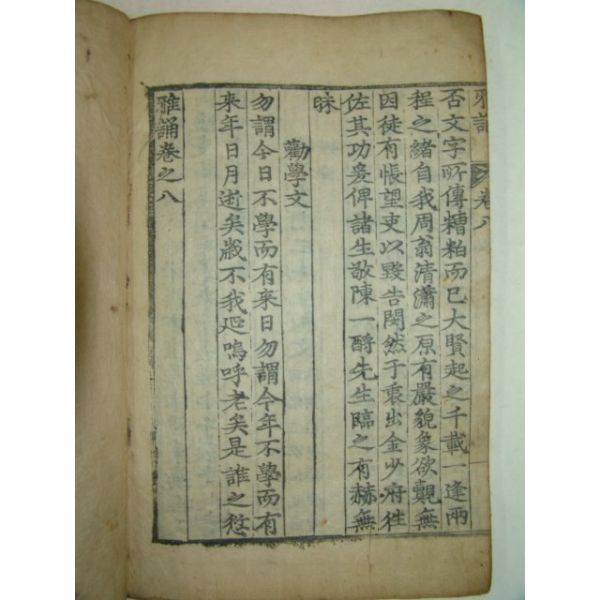 雅誦 卷八
否文字所傳糟粕而已大賢起之千載一逢兩
程之緒自我周翁清瀟之原有嚴貌象欲觀無
因徒有悵望吏以毀告閔然于衷出金少府往
佐其功爰俾諸生敬陳一酹先生臨之有赫無
昧
勸學文
勿謂今日不學而有来日勿謂今年不學而有
来年日月逝矣歲不我延嗚呼老矣是誰之愆
雅誦卷之八